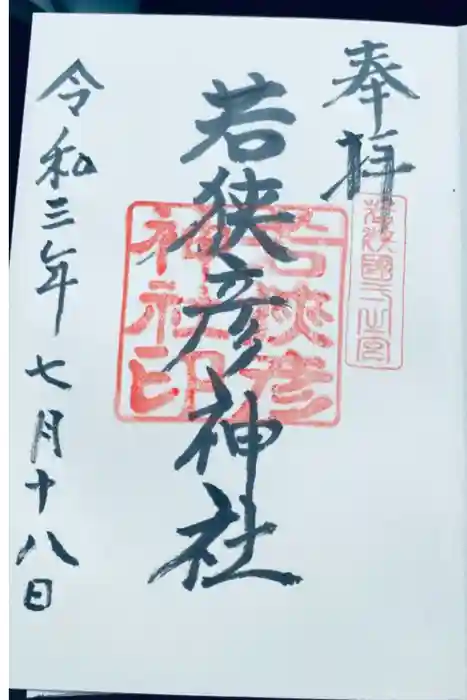 奉拝
若狭國一之宮
若狭彦神社
若狭彦
神社印
令和三年七月十八日